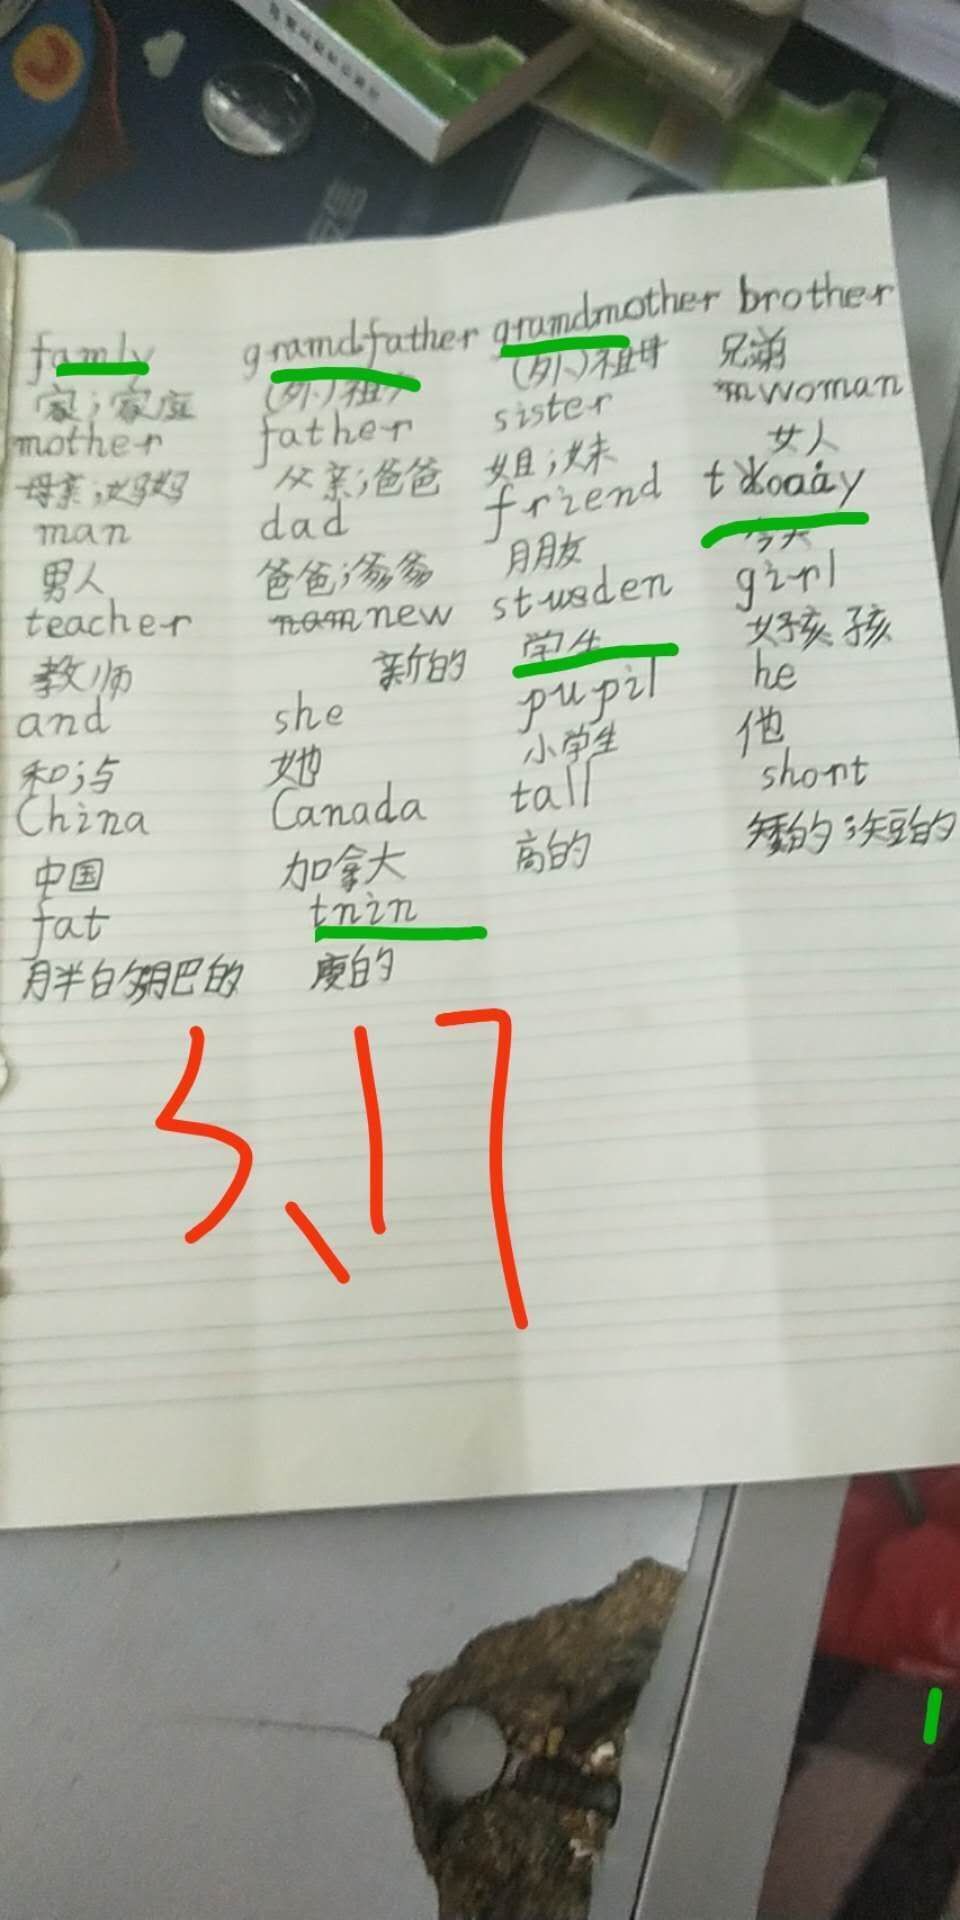 famly gramdfather gramdmother brother
家；家庭 (外)祖父 (外)祖母 兄弟
mother father sister woman
母亲；妈妈 父亲；爸爸 姐；妹 女人
man dad friend today
男人 爸爸；爹爹 朋友 今天
teacher new studen girl
教师 新的 学生 女孩
and she pupil he
和；与 她 小学生 他
China Canada tall short
中国 加拿大 高的 矮的；短的
fat tnin
胖的 肥的
3、17